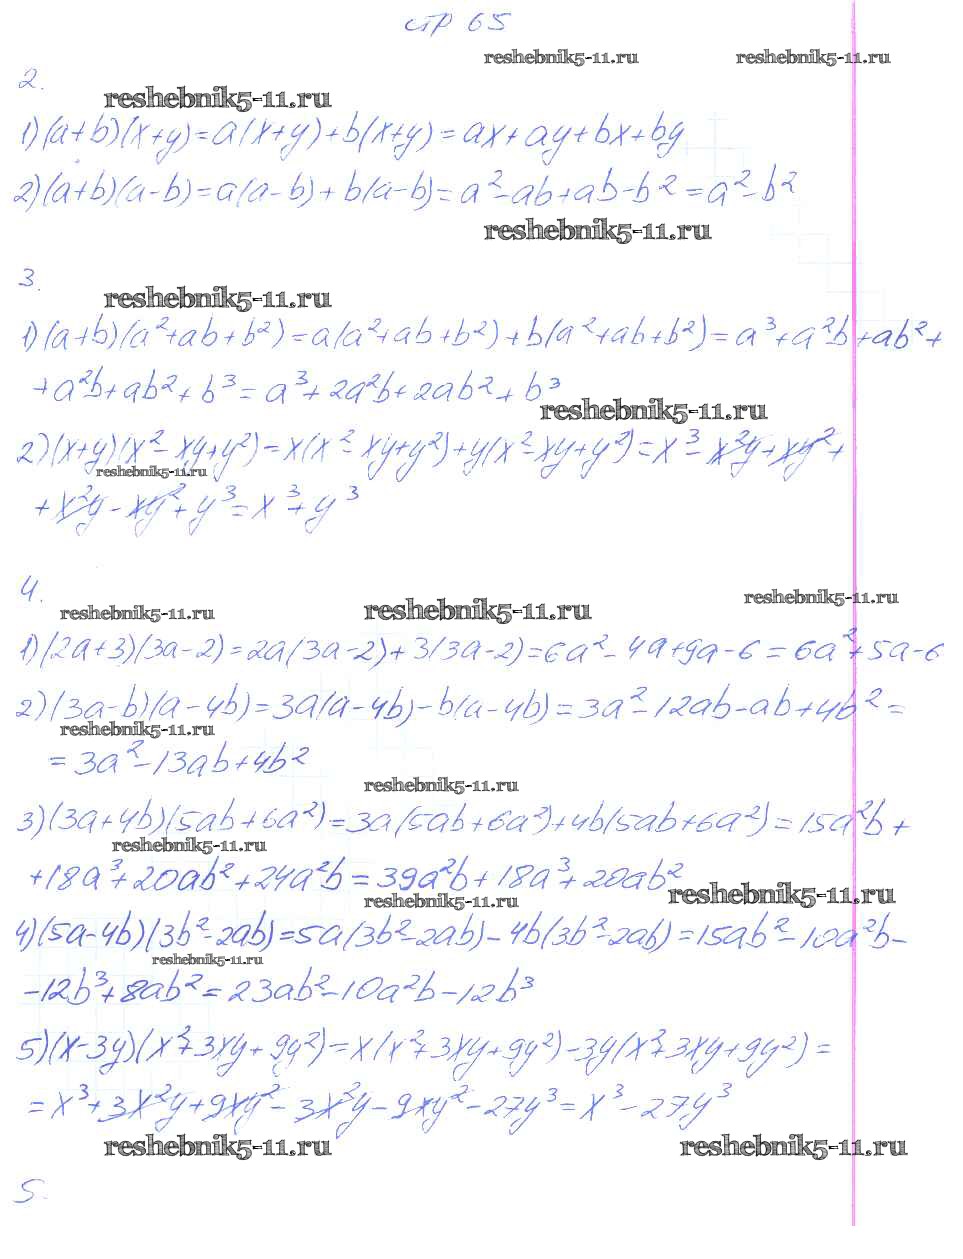 стр 65
reshebnik5-11.ru reshebnik5-11.ru
2.
reshebnik5-11.ru
1)(a+b)(x+y)=a(x+y)+b(x+y)=ax+ay+bx+by
2)(a+b)(a-b)=a(a-b)+b(a-b)=a²-ab+ab-b²=a²-b²
reshebnik5-11.ru
3.
reshebnik5-11.ru
1)(a+b)(a²+ab+b²)=a(a²+ab+b²)+b(a²+ab+b²)=a³+a²b+ab²+
+a²b+ab²+b³=a³+2a²b+2ab²+b³
reshebnik5-11.ru
2)(x+y)(x²-xy+y²)=x(x²-xy+y²)+y(x²-xy+y²)=x³-x²y+xy²+
reshebnik5-11.ru
+x²y-xy²+y³=x³+y³
4.
reshebnik5-11.ru reshebnik5-11.ru reshebnik5-11.ru
1)(2a+3)(3a-2)=2a(3a-2)+3(3a-2)=6a²-4a+9a-6=6a²+5a-6
2)(3a-b)(a-4b)=3a(a-4b)-b(a-4b)=3a²-12ab-ab+4b²=
reshebnik5-11.ru
=3a²-13ab+4b²
reshebnik5-11.ru
3)(3a+4b)(5ab+6a²)=3a(5ab+6a²)+4b(5ab+6a²)=15a²b+
reshebnik5-11.ru
+18a³+20ab²+24a²b=39a²b+18a³+20ab²
reshebnik5-11.ru reshebnik5-11.ru
4)(5a-4b)(3b²-2ab)=5a(3b²-2ab)-4b(3b²-2ab)=15ab²-10a²b-
reshebnik5-11.ru
-12b³+8ab²=23ab²-10a²b-12b³
5)(x-3y)(x²+3xy+9y²)=x(x²+3xy+9y²)-3y(x²+3xy+9y²)=
=x³+3x²y+9xy²-3x²y-9xy²-27y³=x³-27y³
reshebnik5-11.ru reshebnik5-11.ru
5.